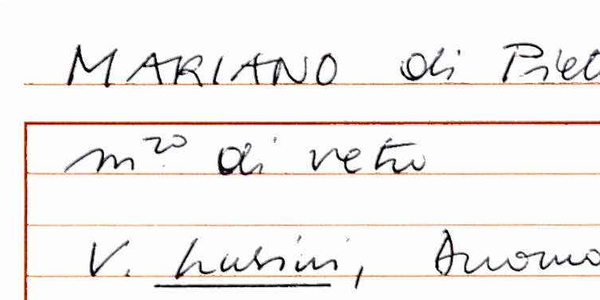 MARIANO di Piet
m.ro di vetro
V. Lusini,